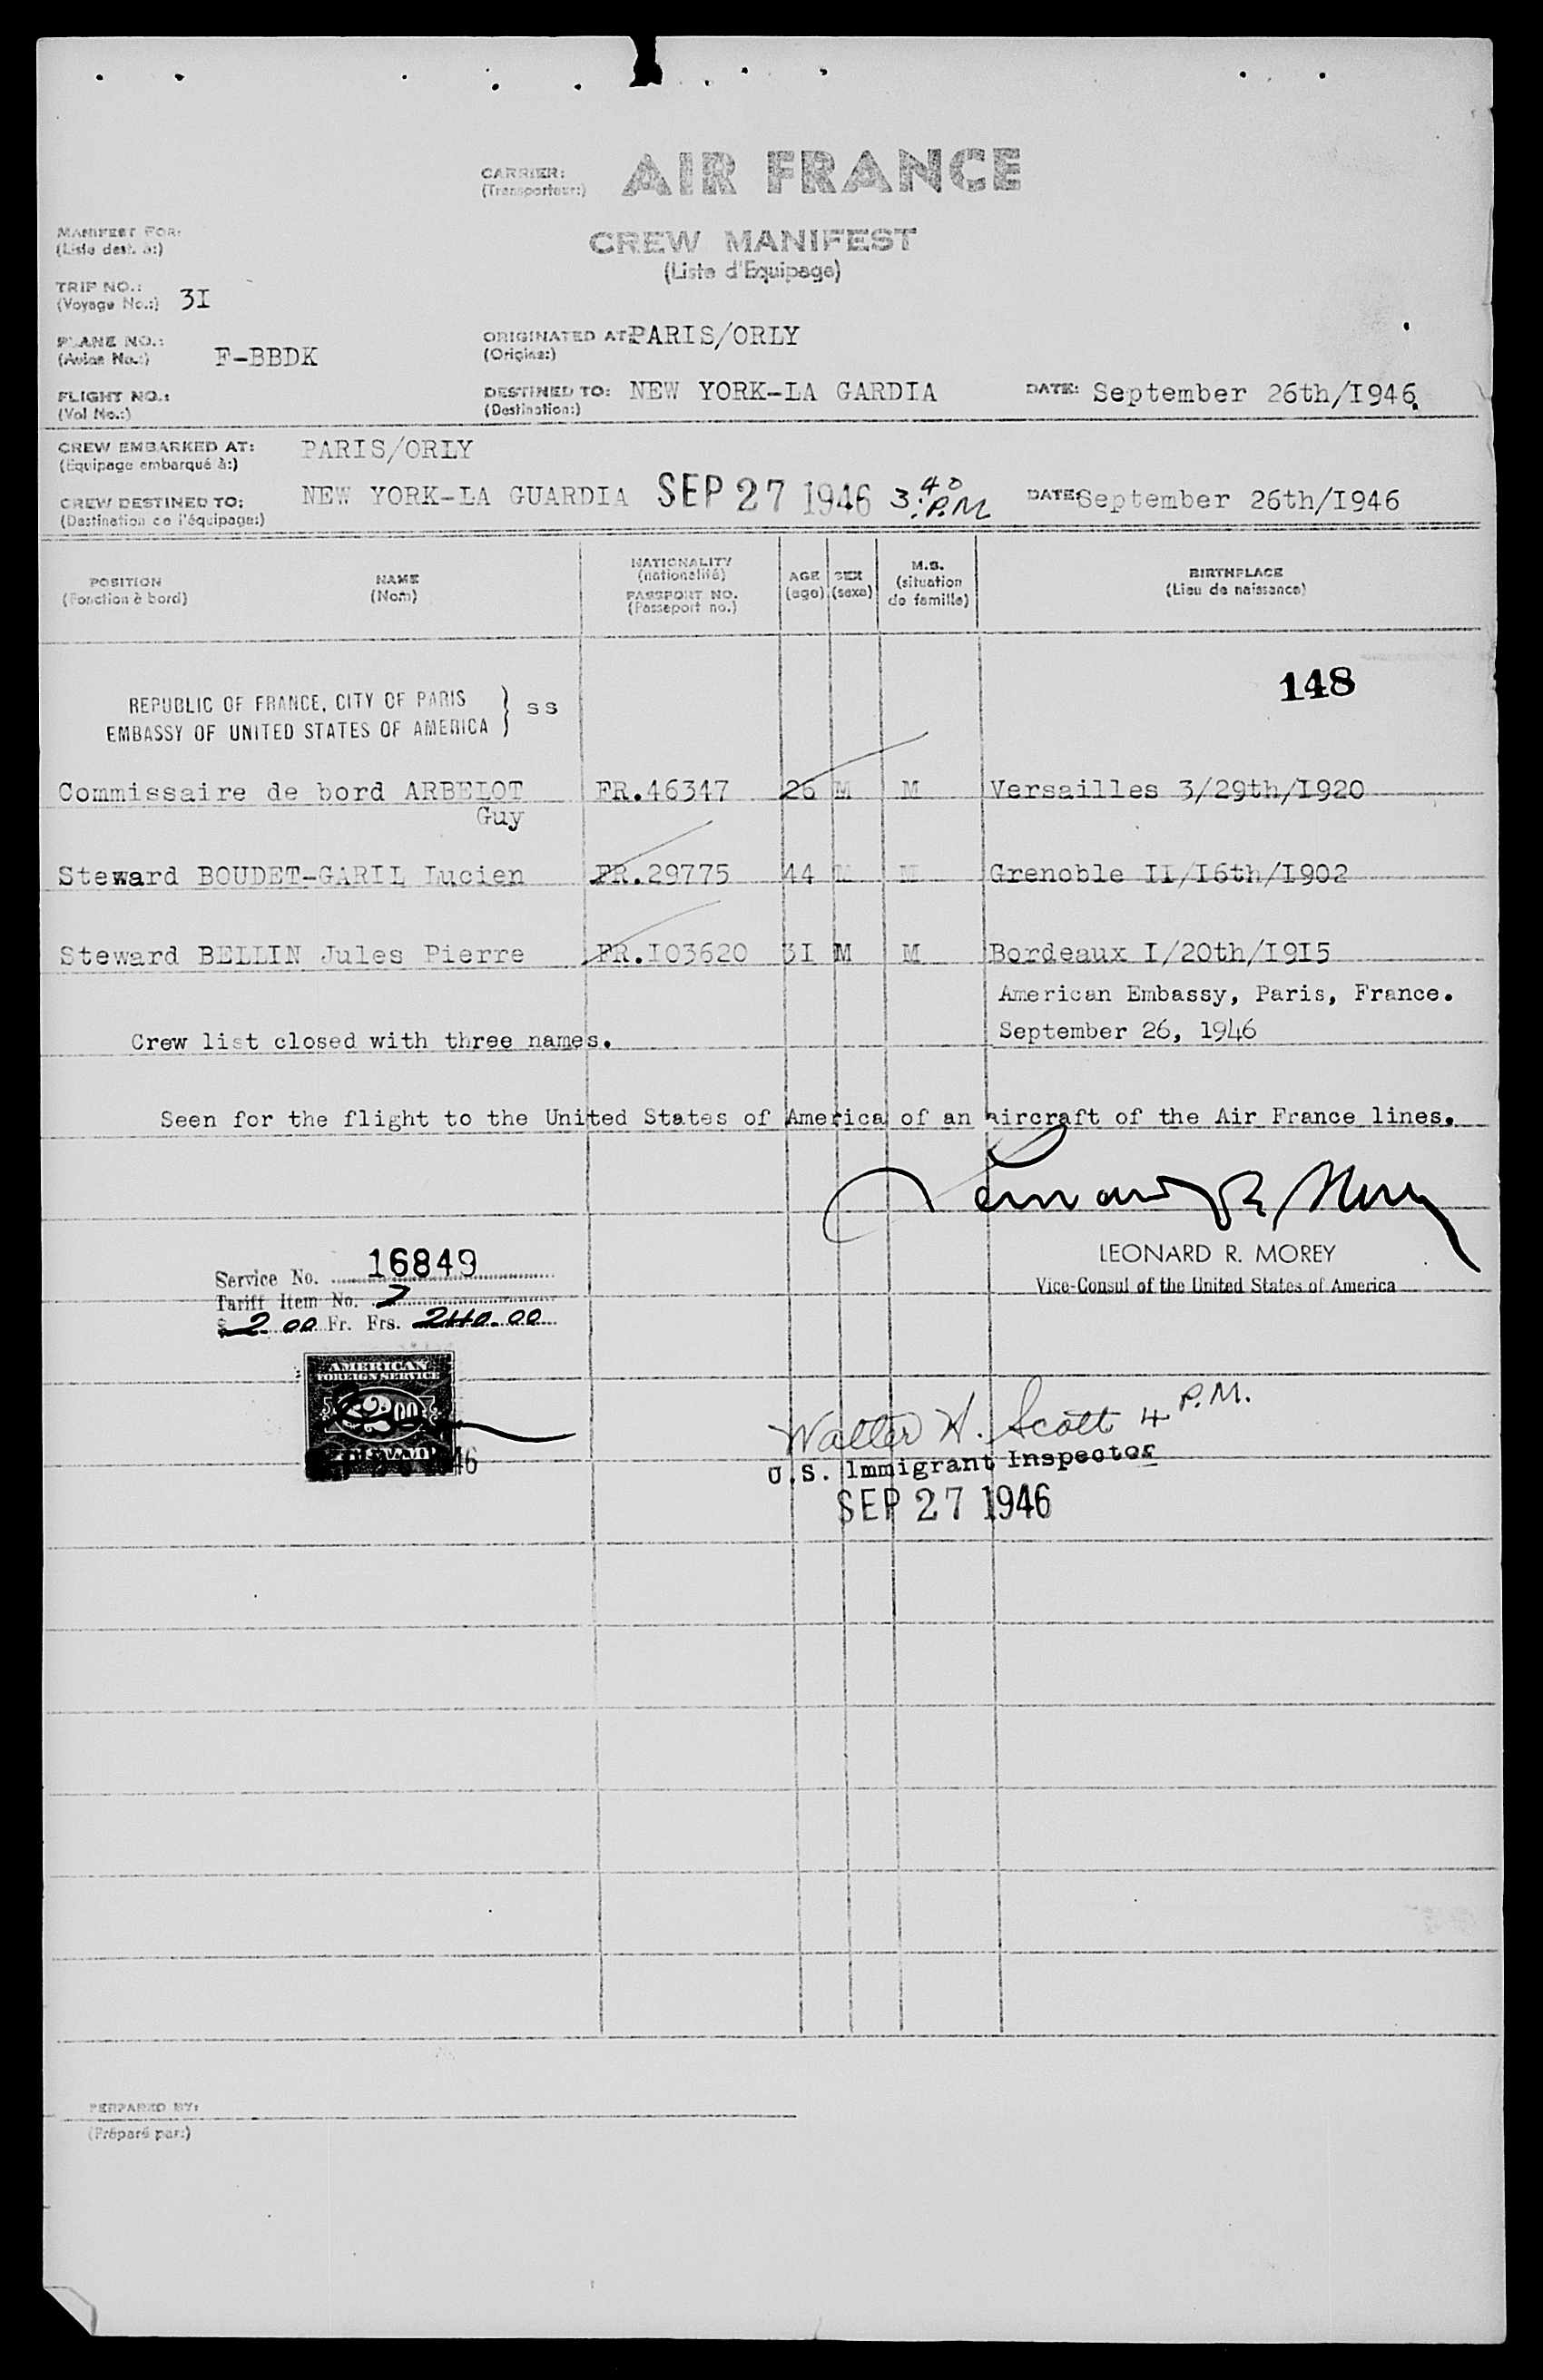 CARRIER: AIR FRANCE
(Transporteur:)
MANIFEST FOR:
(Liste dest. à:)
CREW MANIFEST
(Liste d'Equipage)
TRIP NO.:
(Voyage No.:) 3I
PLANE NO.:
(Avion No.:) F-BBDK
ORIGINATED AT: PARIS/ORLY
(Origine:)
FLIGHT NO.:
(Vol No.:)
DESTINED TO: NEW YORK-LA GARDIA
(Destination:)
DATE: September 26th/I946.
CREW EMBARKED AT: PARIS/ORLY
(Equipage embarqué à:)
CREW DESTINED TO: NEW YORK-LA GUARDIA SEP 27 1946 3:40 P.M DATE: September 26th/I946
(Destination de l'équipage:)
POSITION
(Fonction à bord)
NAME
(Nom)
NATIONALITY
(nationalité)
PASSPORT NO.
(Passeport no.)
AGE
(age)
SEX
(sexe)
M.S.
(situation
de famille)
BIRTHPLACE
(Lieu de naissance)
148
REPUBLIC OF FRANCE, CITY OF PARIS
EMBASSY OF UNITED STATES OF AMERICA } SS
Commissaire de bord ARBELOT FR.46347 26 M M Versailles 3/29th/I920
Guy
Steward BOUDET-GARIL Lucien FR.29775 44 M M Grenoble II/I6th/I902
Steward BELLIN Jules Pierre FR.I03620 3I M M Bordeaux I/20th/I9I5
American Embassy, Paris, France.
Crew list closed with three names. September 26, 1946
Seen for the flight to the United States of America of an aircraft of the Air France lines.
Leonard R. Morey
LEONARD R. MOREY
Vice-Consul of the United States of America
Service No. 16849
Tariff Item No. 7
$ 2.00 Fr. Frs. 240.00
AMERICAN
FOREIGN SERVICE
$2.00
FEE STAMP
46
Walter H. Scott 4 P.M.
U.S. Immigrant Inspector
SEP 27 1946
PERPARED BY:
(Préparé par:)